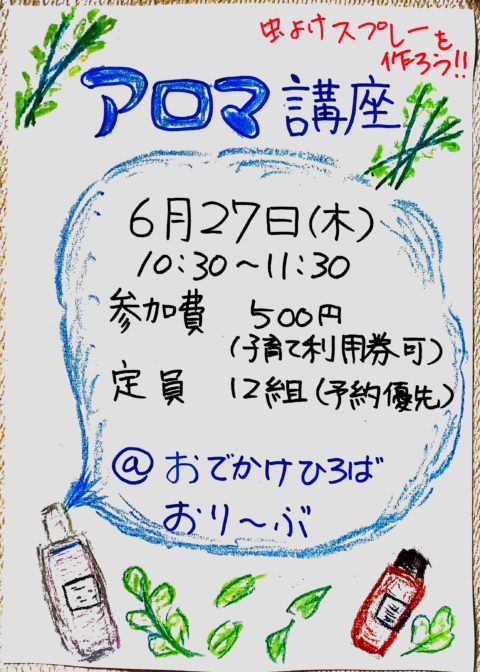 虫よけスプレーを
作ろう!!
アロマ講座
6月27日(木)
10:30〜11:30
参加費 500円
(子育て利用券可)
定員 12組(予約優先)
@おでかけひろば
おり〜ぶ